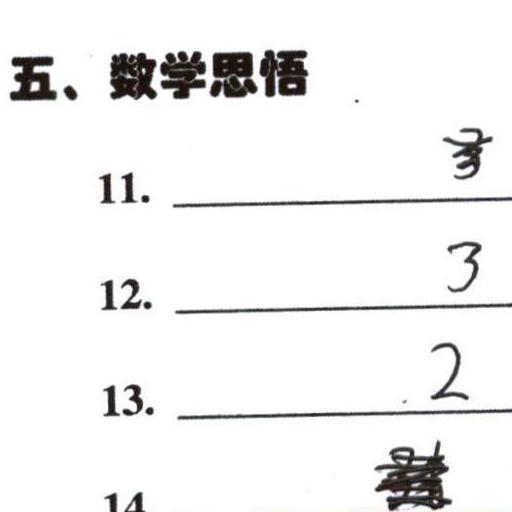 五、数学思悟
11.
12. 3
13. 2
14